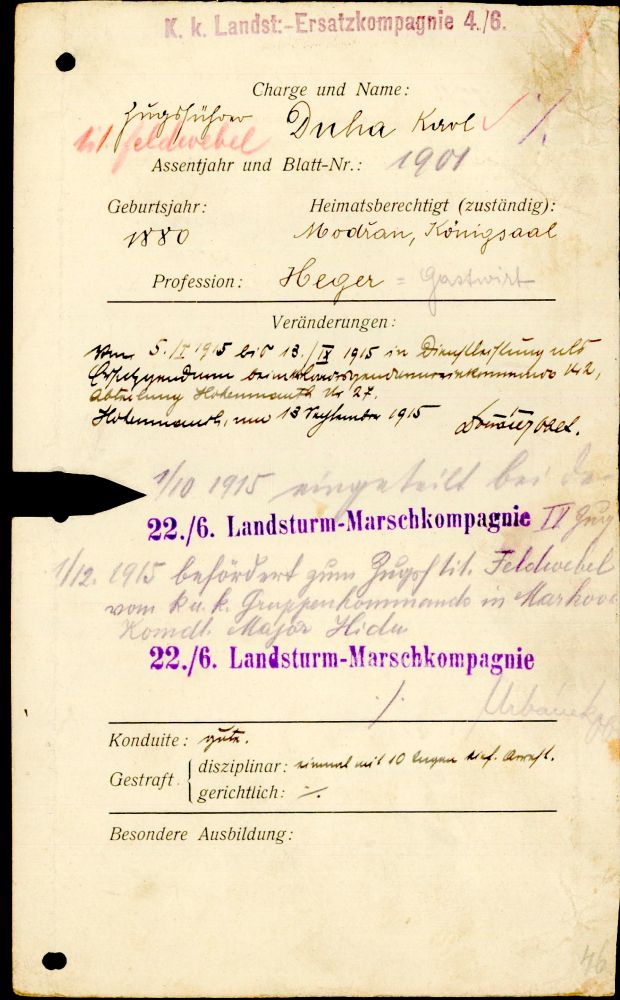 K. k. Landst:-Ersatzkompagnie 4./6.
Charge und Name:
Zugsführer Duha Karl
tit. Feldwebel
Assentjahr und Blatt-Nr.: 1901
Geburtsjahr: Heimatsberechtigt (zuständig):
1880 Modřan, Königsaal
Profession: Heger = Gastwirt
Veränderungen:
Vom 5./I 1915 bis 13./IX 1915 in Dienstleistung als
beim Landesgendarmeriekommando No 2,
Abteilung Hohenmauth Nr 27.
Hohenmauth, am 13 September 1915
1/10 1915 eingeteilt bei der
22./6. Landsturm-Marschkompagnie IV Zug
1/12. 1915 befördert zum Zugsf tit. Feldwebel
vom k.u.k. Gruppenkommando in
Komdt. Major Hidu
22./6. Landsturm-Marschkompagnie
./.
Konduite: gute.
Gestraft disziplinar: einmal mit 10 Tagen Arrest.
gerichtlich: ./.
Besondere Ausbildung:
46